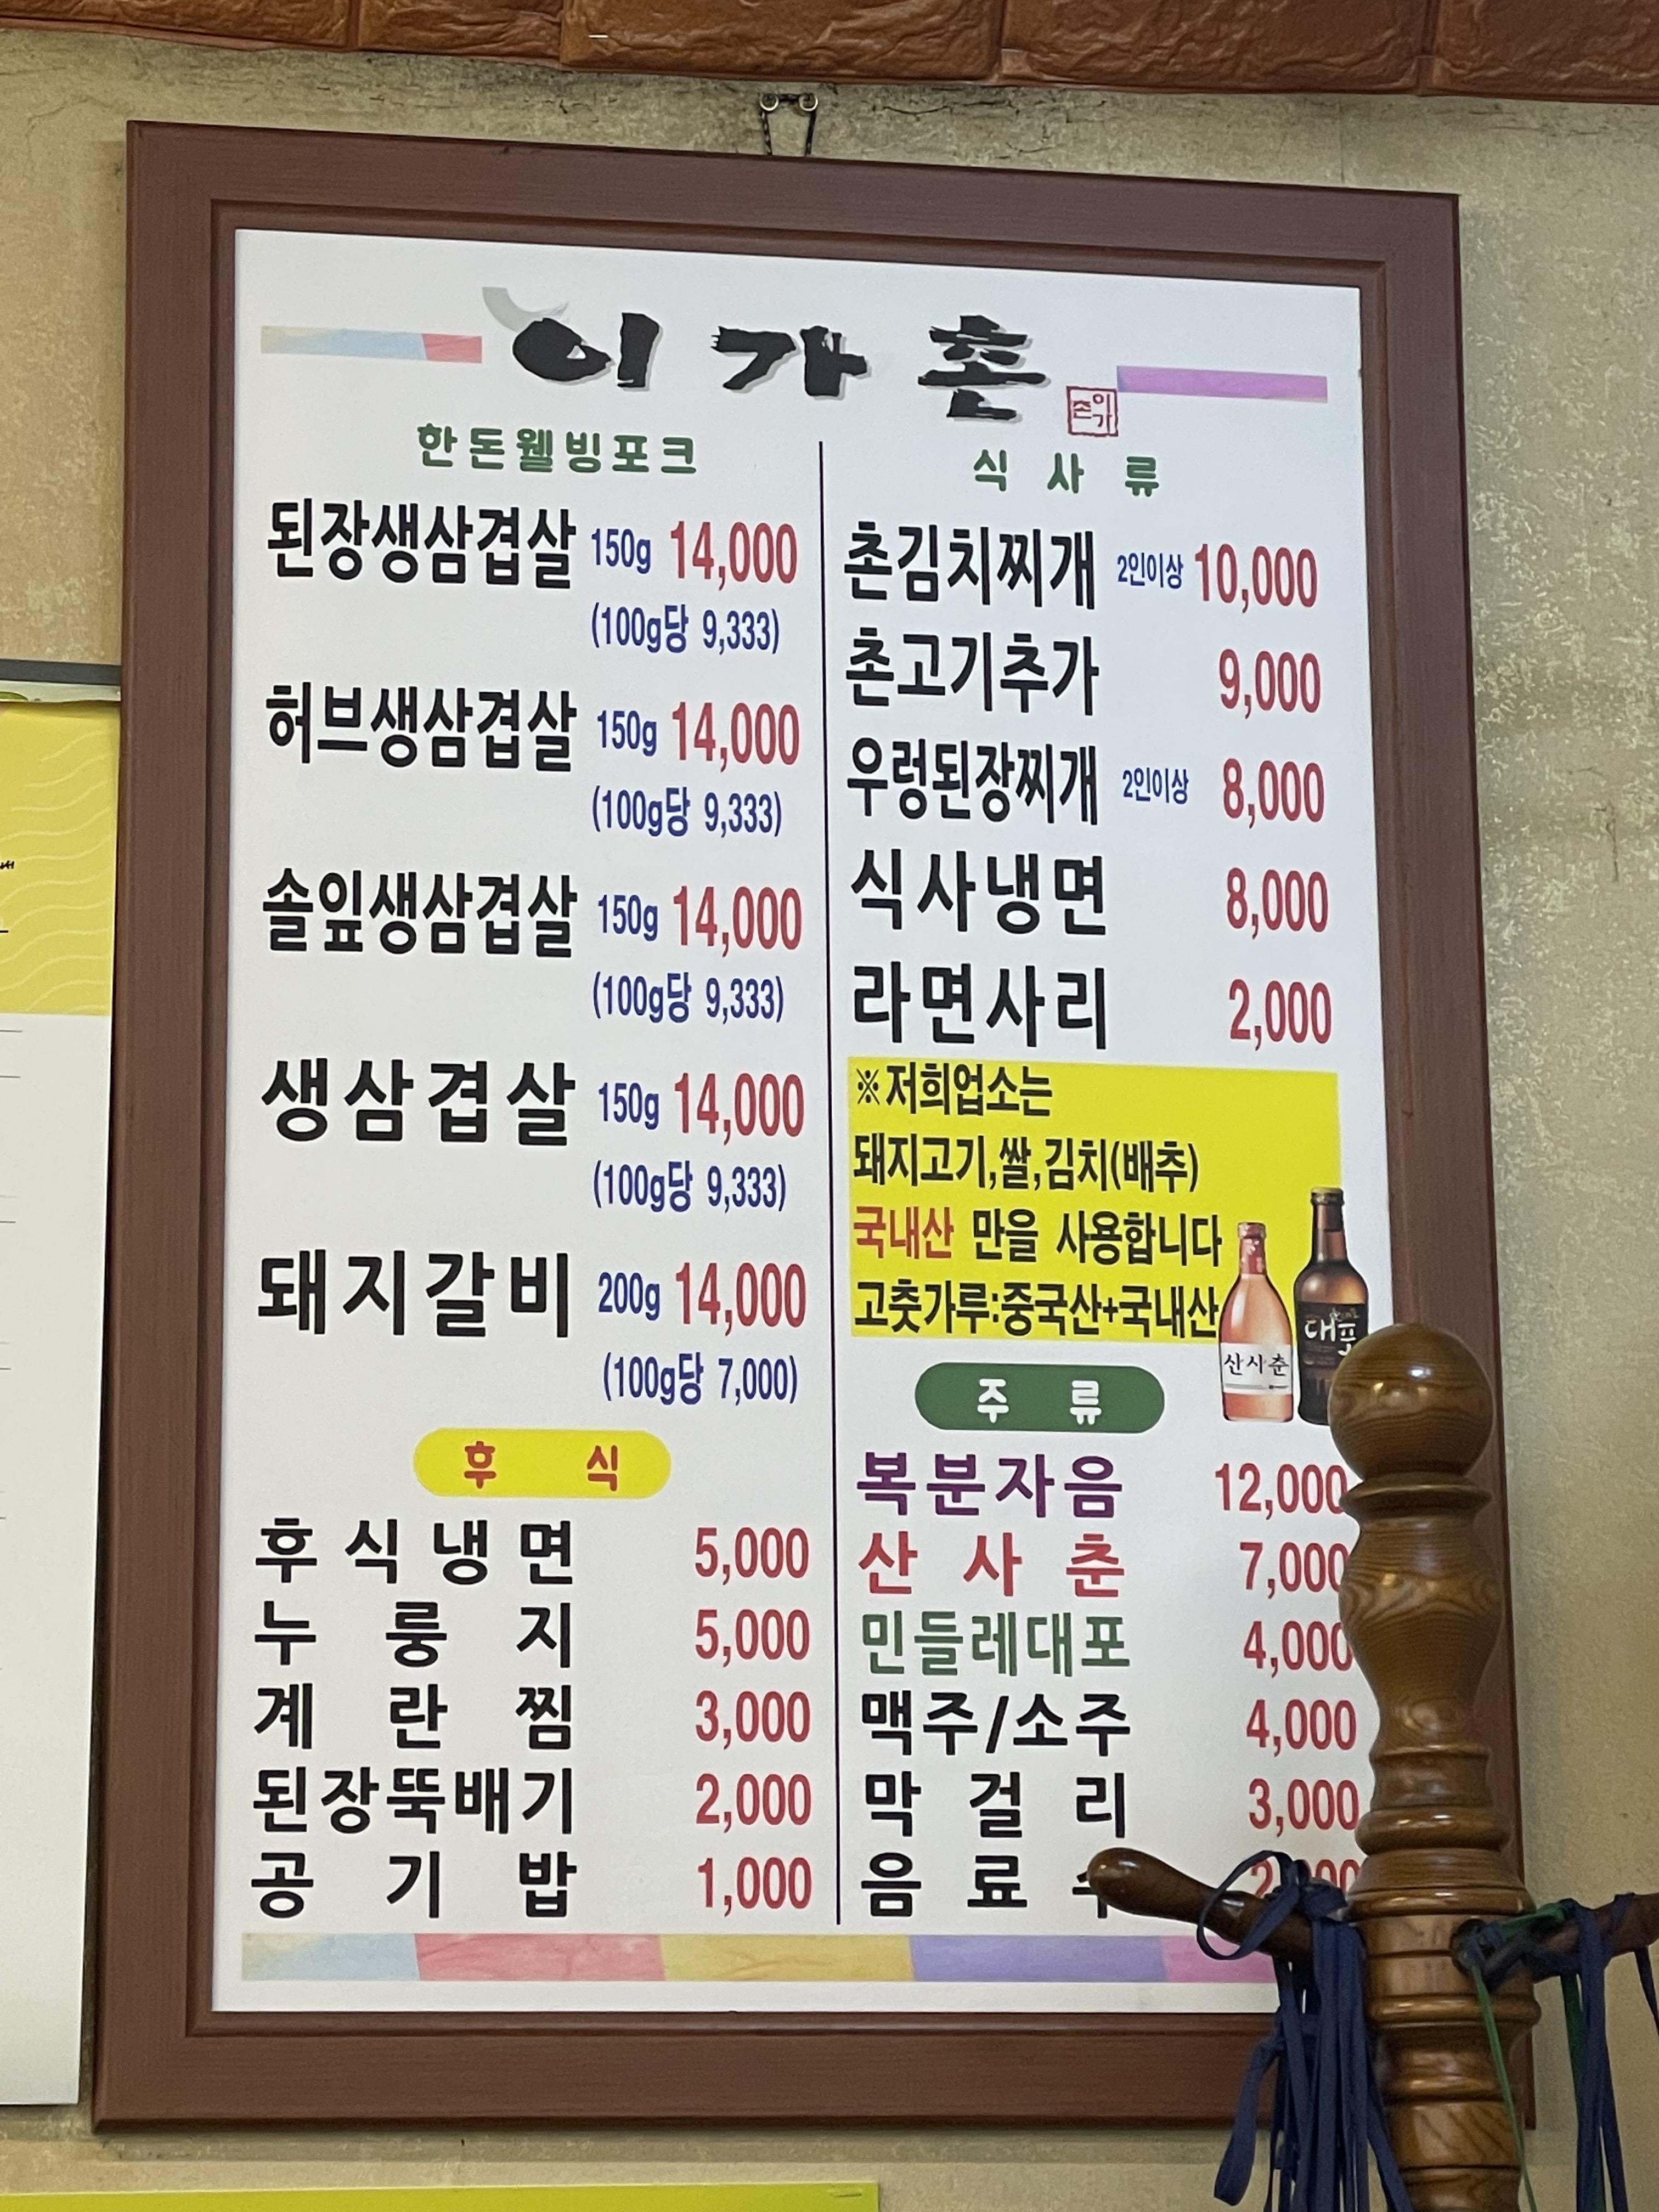 이가촌
이가촌
한돈웰빙포크
된장생삼겹살 150g 14,000
(100g당 9,333)
허브생삼겹살 150g 14,000
(100g당 9,333)
솔잎생삼겹살 150g 14,000
(100g당 9,333)
생삼겹살 150g 14,000
(100g당 9,333)
돼지갈비 200g 14,000
(100g당 7,000)
후식
후식냉면 5,000
누룽지 5,000
계란찜 3,000
된장뚝배기 2,000
공기밥 1,000
식사류
촌김치찌개 2인이상 10,000
촌고기추가 9,000
우렁된장찌개 2인이상 8,000
식사냉면 8,000
라면사리 2,000
※저희업소는
돼지고기,쌀,김치(배추)
국내산 만을 사용합니다
고춧가루:중국산+국내산
산사춘
대포
주류
복분자음 12,000
산사춘 7,000
민들레대포 4,000
맥주/소주 4,000
막걸리 3,000
음료